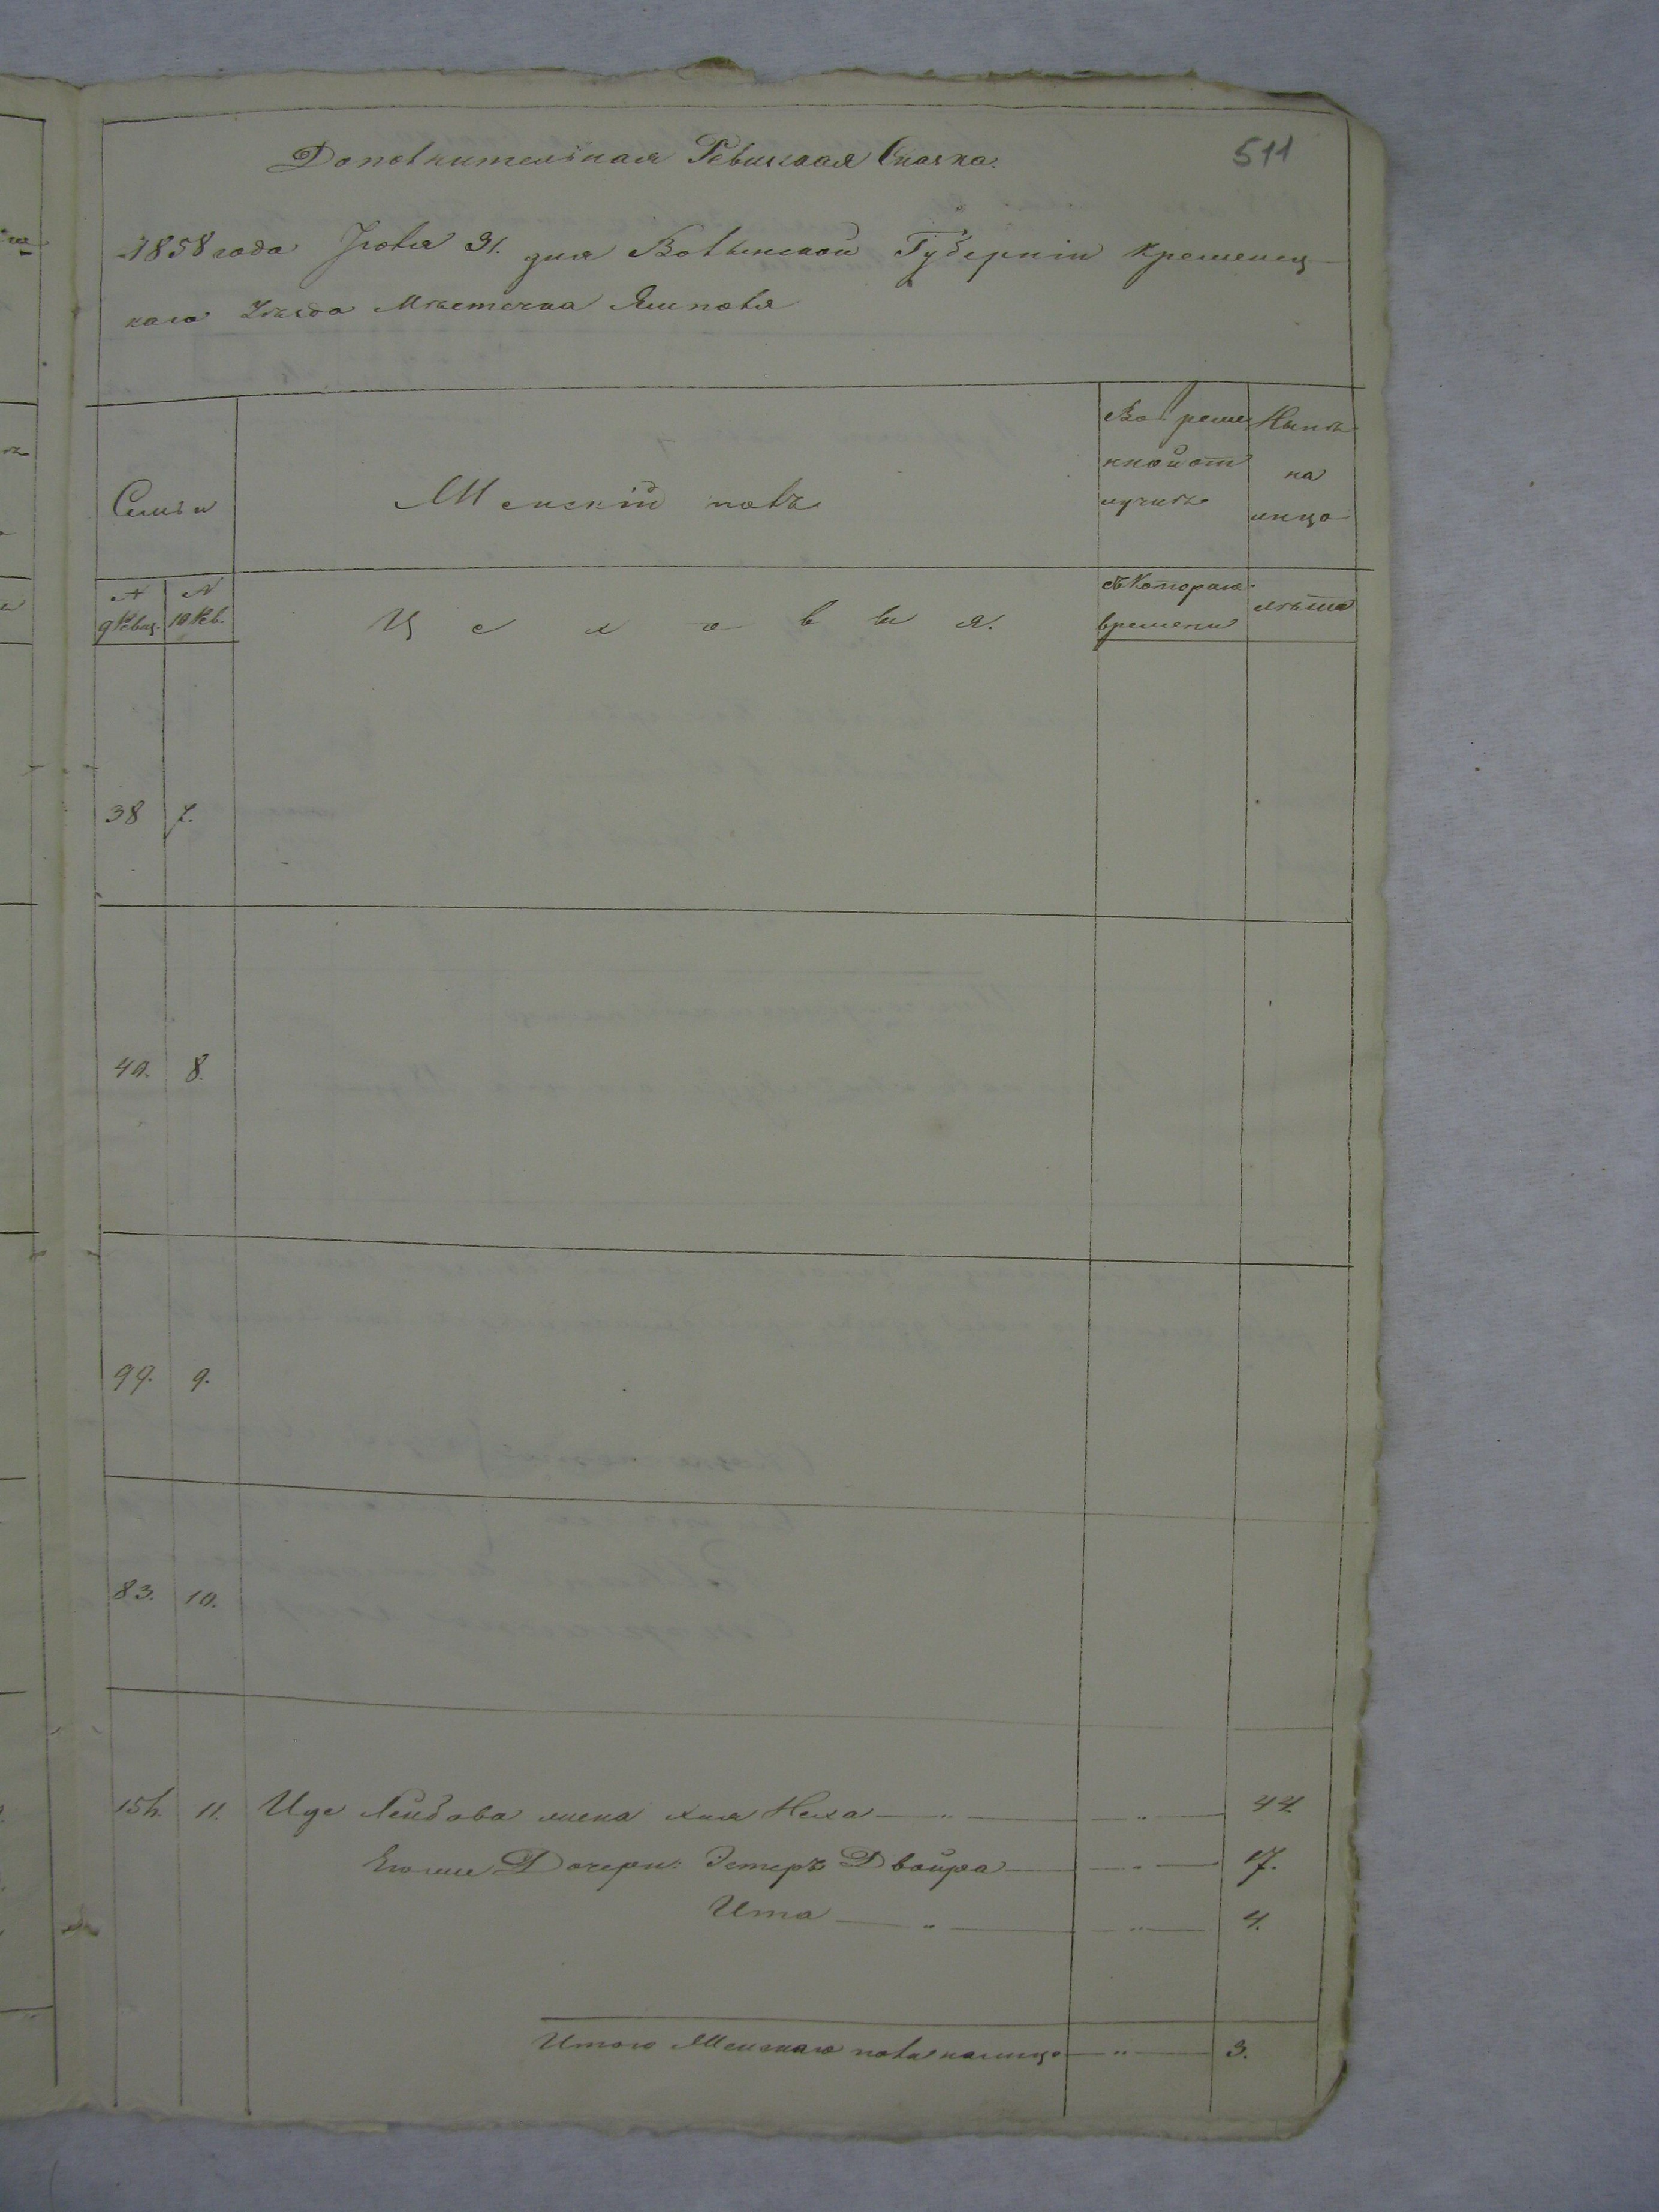 511
Дополнительная Ревизская Сказка.
1858 года Іюля 31. дня Волынской Губерніи Кременец-
каго Уѣзда Мѣстечка Ямполя
Семьи
Женскій полъ
Во времен
ной от
лучкѣ
Нынѣ
на
лицо
№
9 Ревиз.
№
10 Рев.
съ Котораго
времени
лѣта
38 7.
40. 8.
99. 9.
83. 10.
11. Лейбова жена Хая Неха — " — " — 44.
Его же Дочери: Эстеръ Двойра — " — 17.
Ита — " — " — 4.
Итого Женскаго пола налицо — " — 3.